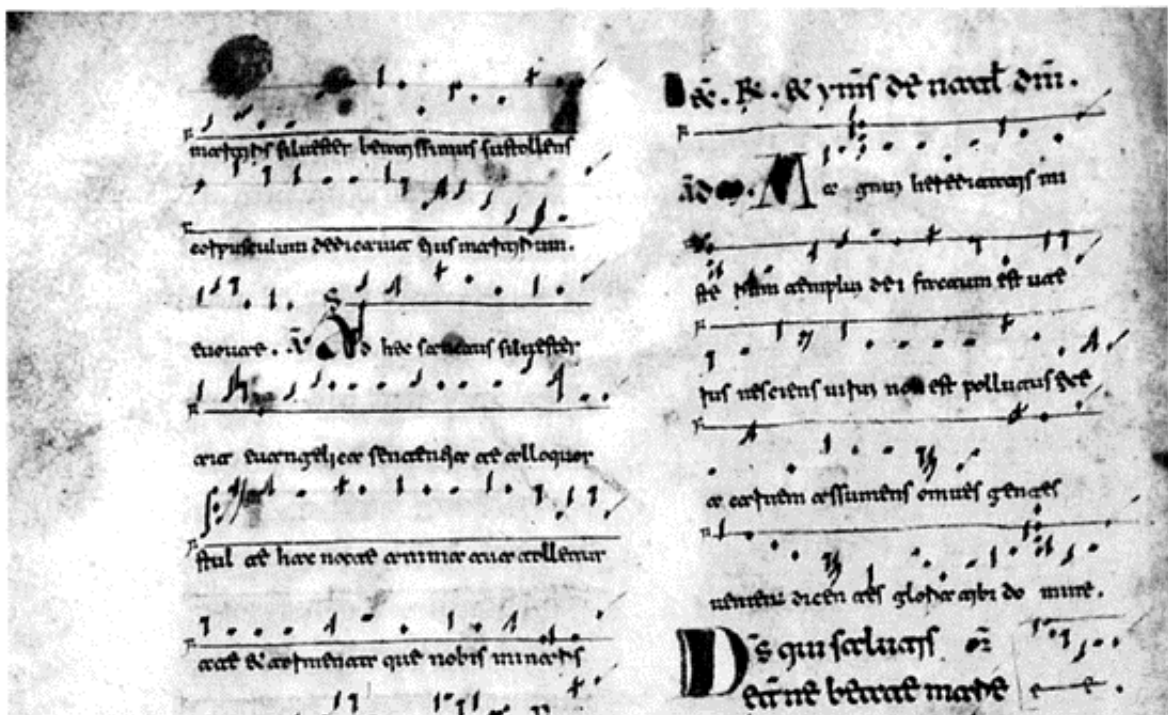 martyris siluester beatissimus sustollens
corpusculum dedicauit eius martyrium.
euouae. Ad hec sanctus siluester
euangelica sententia te alloquor
stul te hac nocte anima tua tolletur
a te & tormenta que nobis minaris
&. R. & ymns de natal dni.
Ma gnum hereditatis mi
ste rium templum dei factum est ute
rus nesciens uirum non est pollutus ex e
a carnem assumens omnes gentes
uenient dicen tes gloria tibi do mine.
Ds qui salutis
etne beate marie